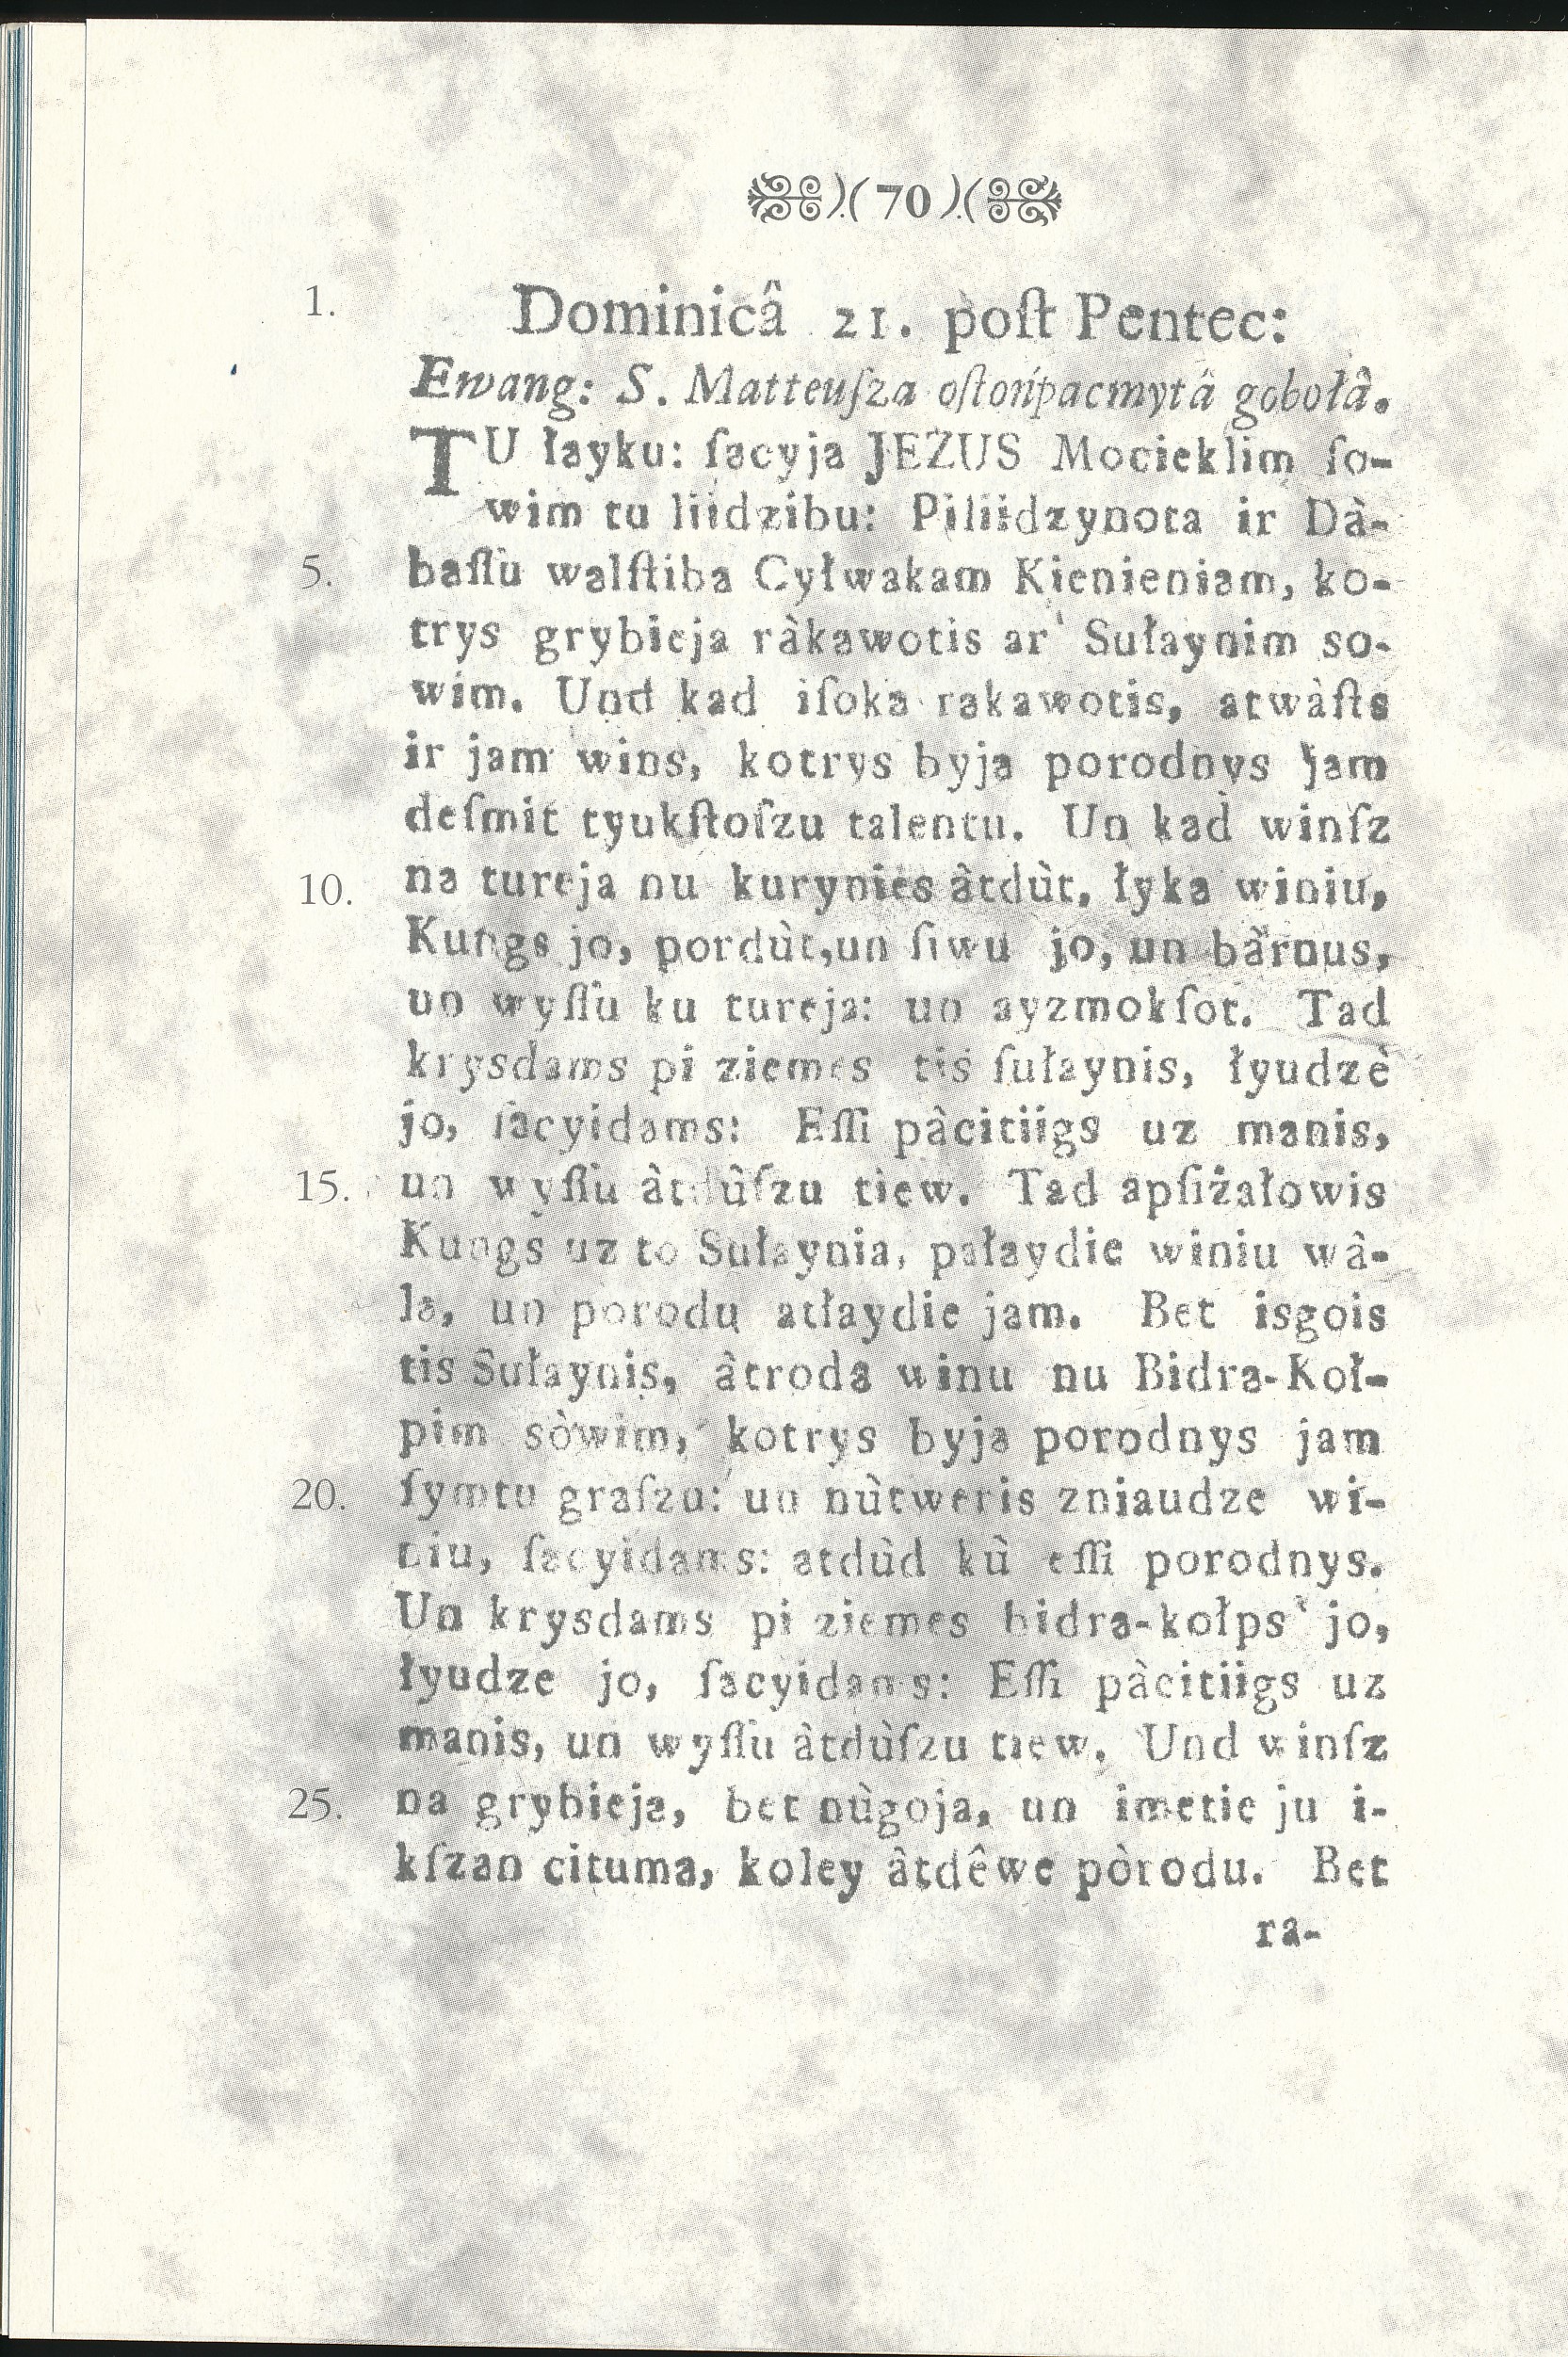 ).( 70 ).(
1. Dominicâ 21. poſt Pentec:
Ewang: S. Matteuſza oſtońpacmytâ gobołâ.
TU łayku: ſacyja JEŻUS Mocieklim ſo-
wim tu liidzibu: Piliidzynota ir Dà-
5. baſſu walſtiba Cyłwakam Kienieniam, ko-
trys grybieja ràkawotis ar' Sułaynim so-
wim. Und kad iſoka rakawotis, atwàſts
ir jam wins, kotrys byja porodnys jam
deſmit tyukſtoſzu talentu. Un kad winſz
10. na tureja nu kurynies âtdùt, łyka winiu,
Kungs jo, pordùt, un ſiwu jo, un bàrnus,
un wyſſu ku tureja: un ayzmokſot. Tad
krysdams pi ziemes tis ſułaynis, łyudzè
jo, ſacyidams: Eſſi pàcitiigs uz manis,
15. un wyſſu âtdûſzu tiew. Tad apſiżałowis
Kungs uz to Sułaynia, pałaydie winiu wâ-
la, un porodu atłaydie jam. Bet isgois
tis Sułaynis, âtroda winu nu Bidra-Koł-
pim sòwim, kotrys byja porodnys jam
20. ſymtu graſzu: un nùtweris zniaudze wi-
niu, ſacyidams: atdùd kù eſſi porodnys.
Un krysdams pi ziemes bidra-kołps jo,
łyudze jo, ſacyidams: Eſſi pàcitiigs uz
manis, un wyſſu âtdùſzu tiew. Und winſz
25. na grybieja, bet nùgoja, un imetie ju i-
kſzan cituma, koley âtdêwe pòrodu. Bet
ra-